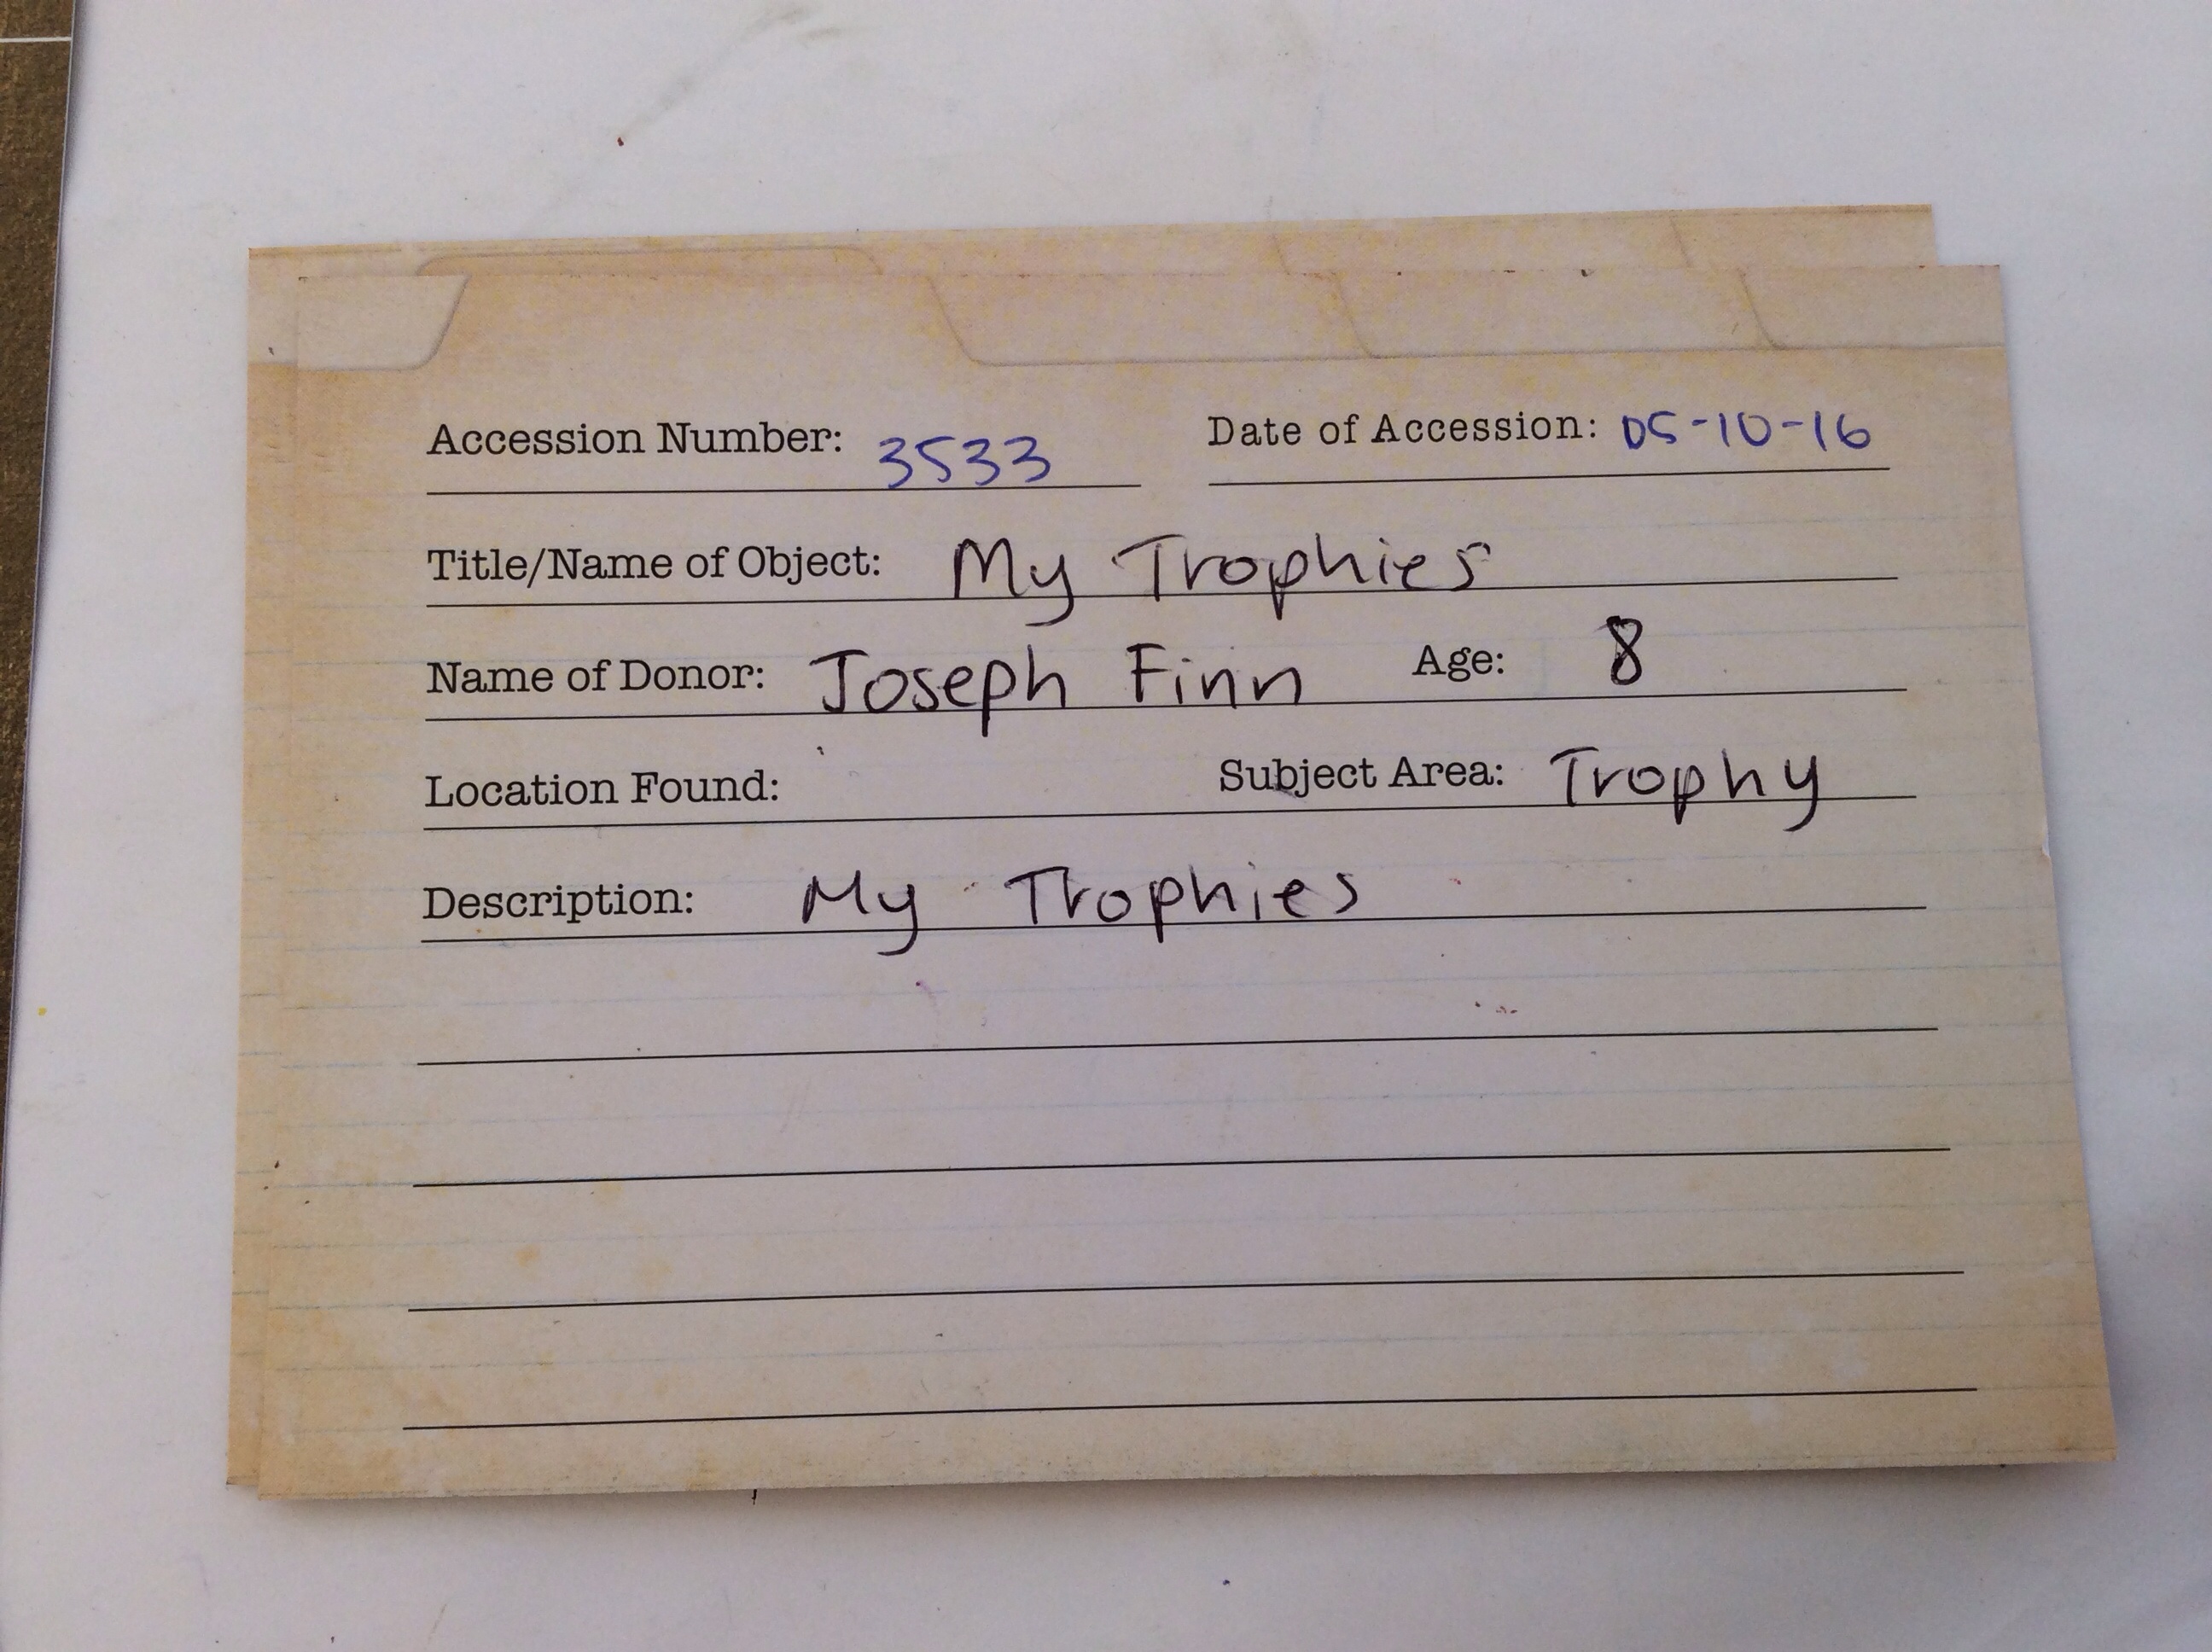 Accession Number: 3533 Date of Accession: 05-10-16
Title/Name of Object: My Trophies
Name of Donor: Joseph Finn Age: 8
Location Found: Subject Area: Trophy
Description: My Trophies